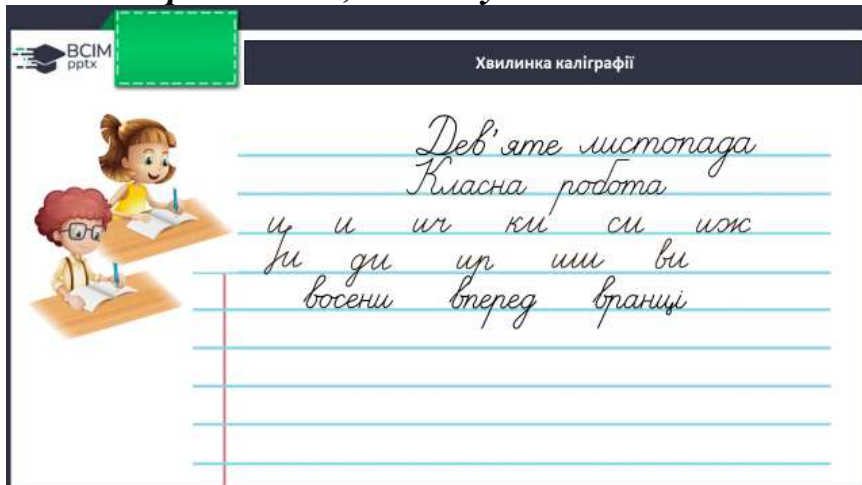 ВСІМ
pptx
Хвилинка каліграфії
Дев'яте листопада
Класна робота
и и ич ки си иж
ди ир ши ви
восени вперед вранці